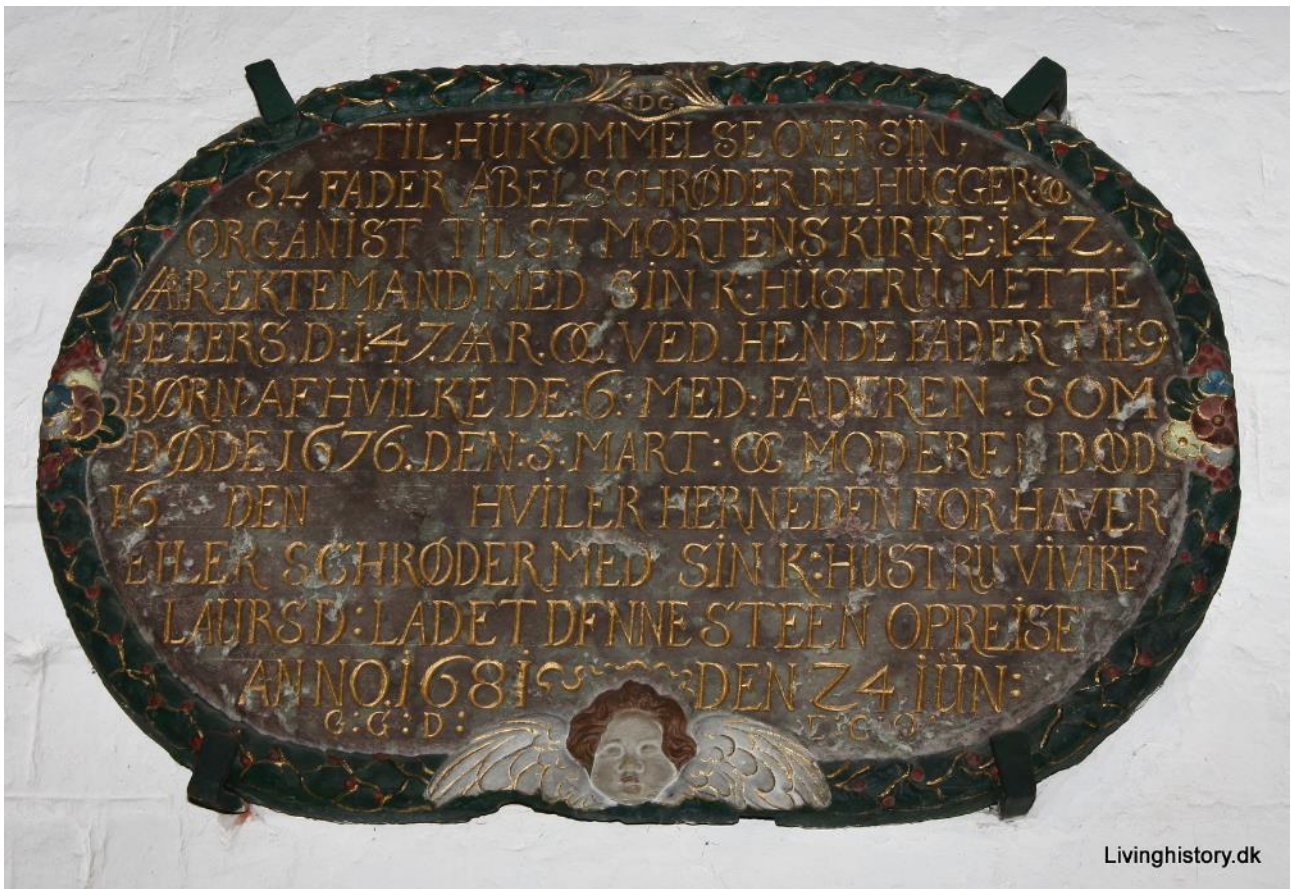 SDG
TIL·HÜKOMMELSE OVER SIN,
SL FADER ABEL SCHRØDER BILHÜGGER: OC
ORGANIST TIL ST MORTENS KIRKE:I·42.
AAR·EKTEMAND·MED SIN K:HÜSTRU·METTE
PETERS.D:I·47.AAR.OC VED.HENDE FADER TIL·9
BØRN·AF HVILKE DE:6·MED·FADEREN.SOM
DØDE 1676.DEN:5.MART:OC MODEREN DØD:
16 DEN HVILER HERNEDEN FOR HAVER
EILER SCHRØDER MED SIN K:HUSTRU VIVIKE
LAURS D:LADET DENNE STEEN OPREISE
ANNO.1681 DEN 24 IÜN:
G:G:D:
Livinghistory.dk